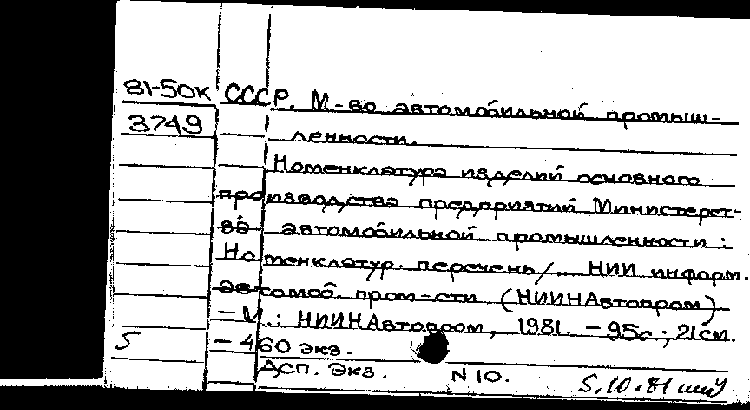 81-50к СССР. М-во автомобильной промыш-
3749 ленности.
Номенклатура изделий основного
производства предприятий Министерст-
ва автомобильной промышленности :
Номенклатур. перечень/... НИИ информ.
автомоб. пром-сти (НИИНАвтопром)
- М.: НИИНАвтопром, 1981. - 95с.; 21см.
5 - 460 экз.
Дсп. Экз. N 10. 5.10.81